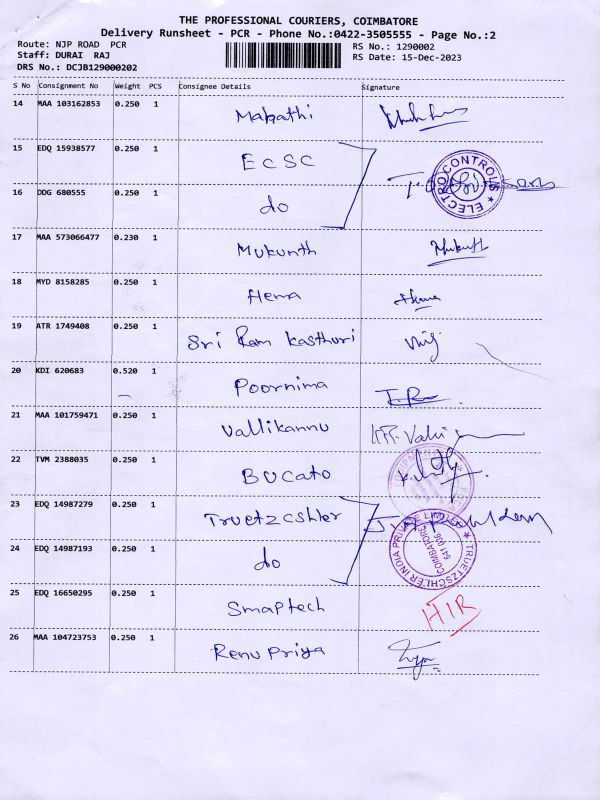 THE PROFESSIONAL COURIERS, COIMBATORE
Delivery Runsheet - PCR - Phone No.:0422-3505555 - Page No.:2
Route: NJP ROAD PCR RS No.: 1290002
Staff: DURAI RAJ RS Date: 15-Dec-2023
DRS No.: DCJB129000202
S No Consignment No Weight PCS Consignee Details Signature
14 MAA 103162853 0.250 1 Mabathi
15 EDQ 15938577 0.250 1 ECSC
ELECTRO CONTROLS
16 DDG 680555 0.250 1 do
17 MAA 573066477 0.230 1 Mukunth Mukunth
18 MYD 8158285 0.250 1 Hema Hema
19 ATR 1749408 0.250 1 Sri Ram Kasthuri
20 KDI 620683 0.520 1 Poornima
21 MAA 101759471 0.250 1 Vallikannu
22 TVM 2388035 0.250 1 Bucato
23 EDQ 14987279 0.250 1 Truetzcshler
TRUETZSCHLER INDIA PRIVATE LIMITED
COIMBATORE
641 036
24 EDQ 14987193 0.250 1 do
25 EDQ 16650295 0.250 1 Smaptech HIR
26 MAA 104723753 0.250 1 Renu Priya